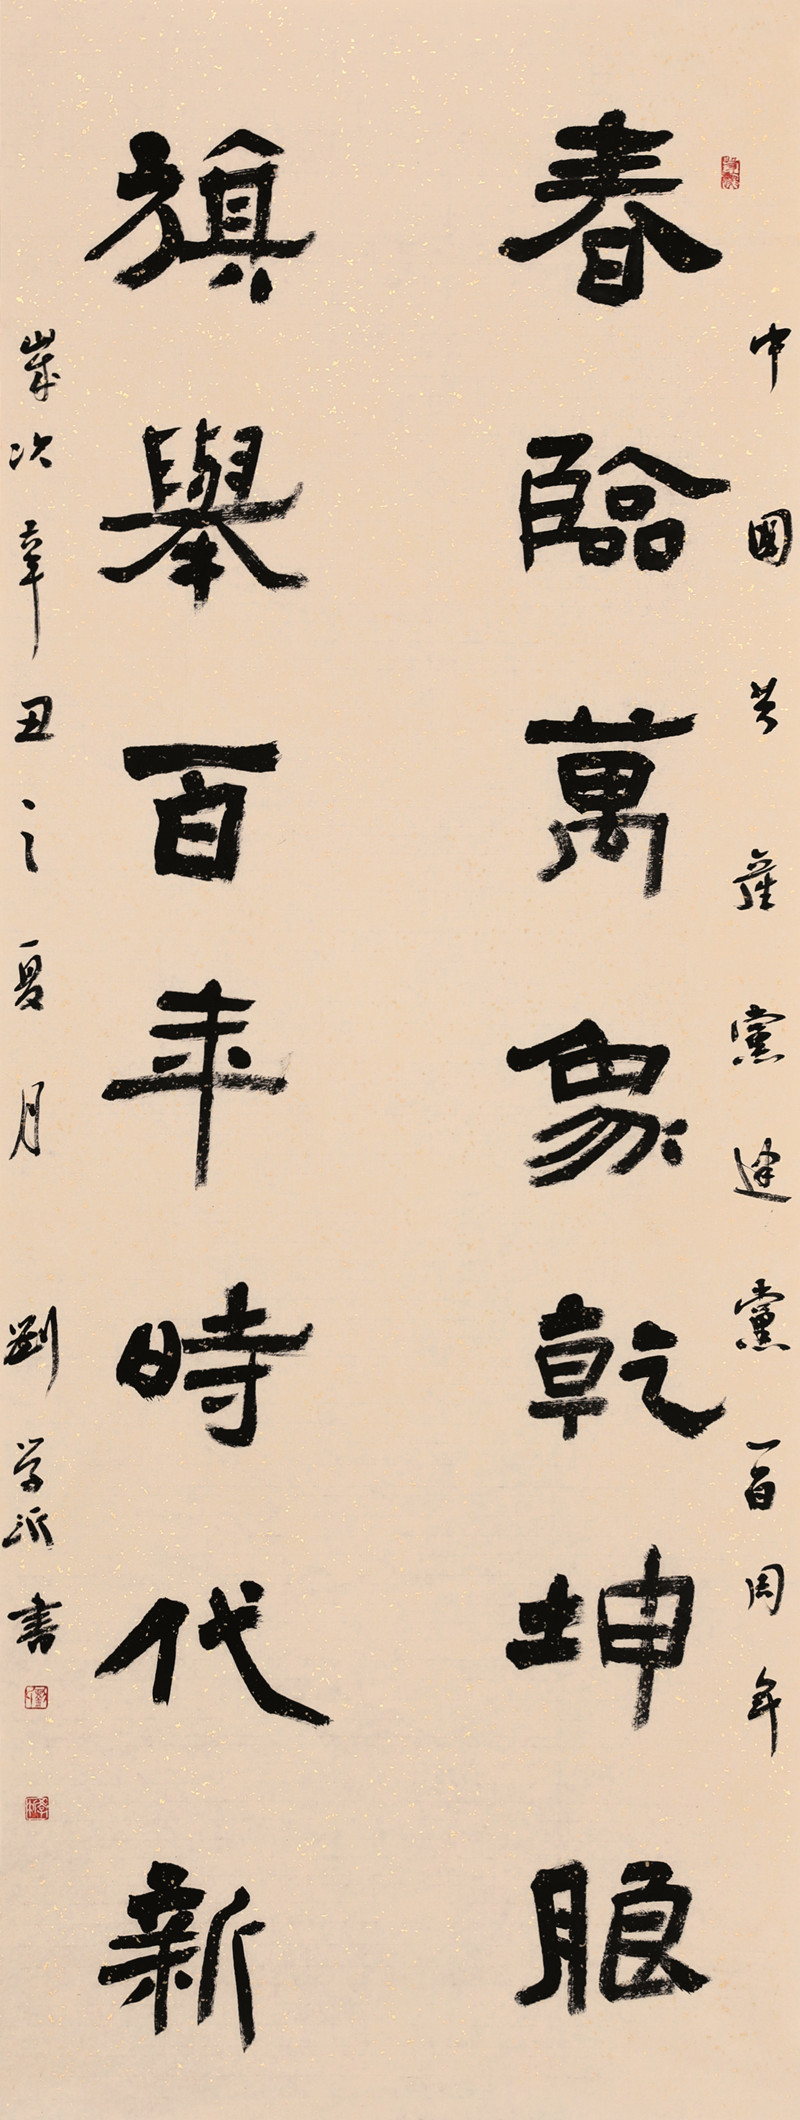 中國共產黨建黨百周年
春臨萬象乾坤朖
旗舉百年時代新
歲次辛丑之夏月 劉学 書